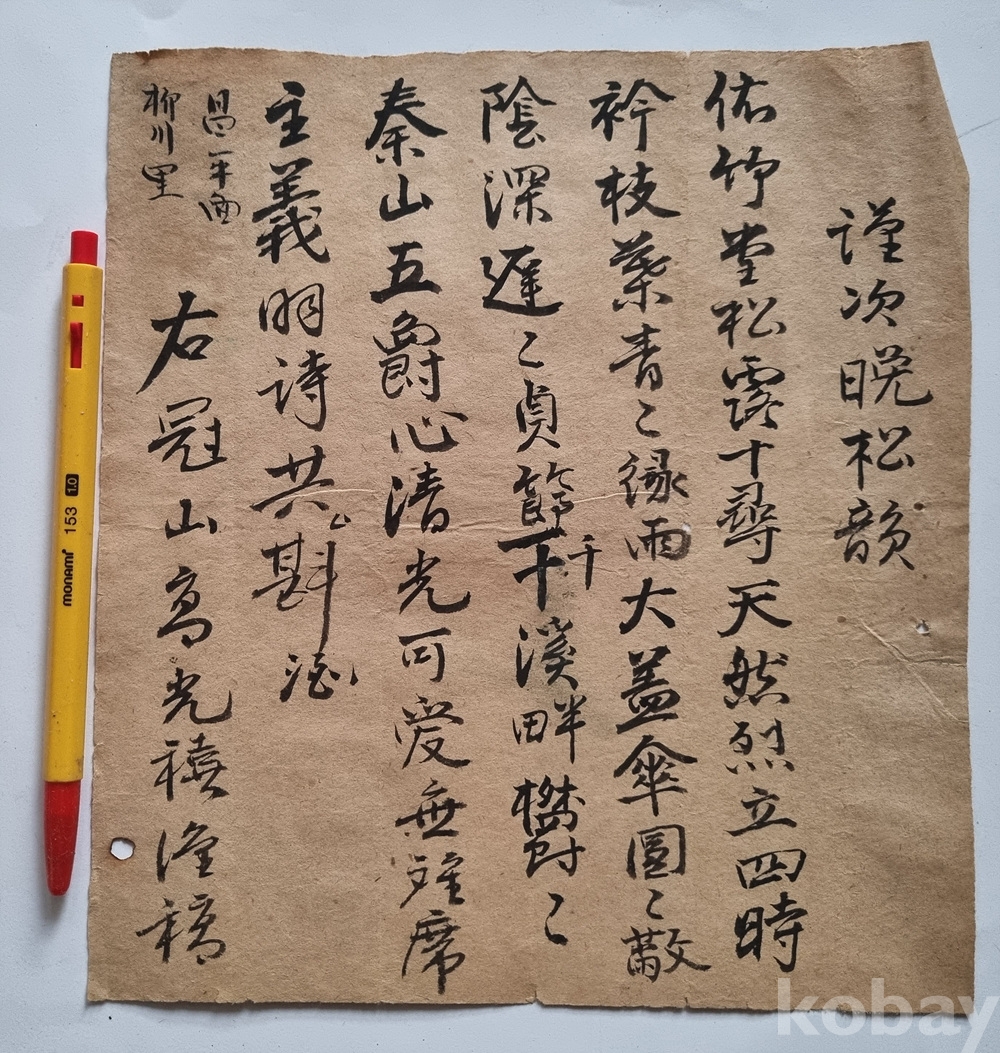 謹次晩松韻
佑竹堂松露十尋天然烈立四時
衿枝葉青〻緣雨大蓋傘圓〻蔽
陰深遲〻貞節千溪畔欝〻
秦山五爵心清光可愛無雜席
主義明詩共斟酒
昌平面
柳川里
右冠山高光禧謹稿
monami 153 1.0
kobay